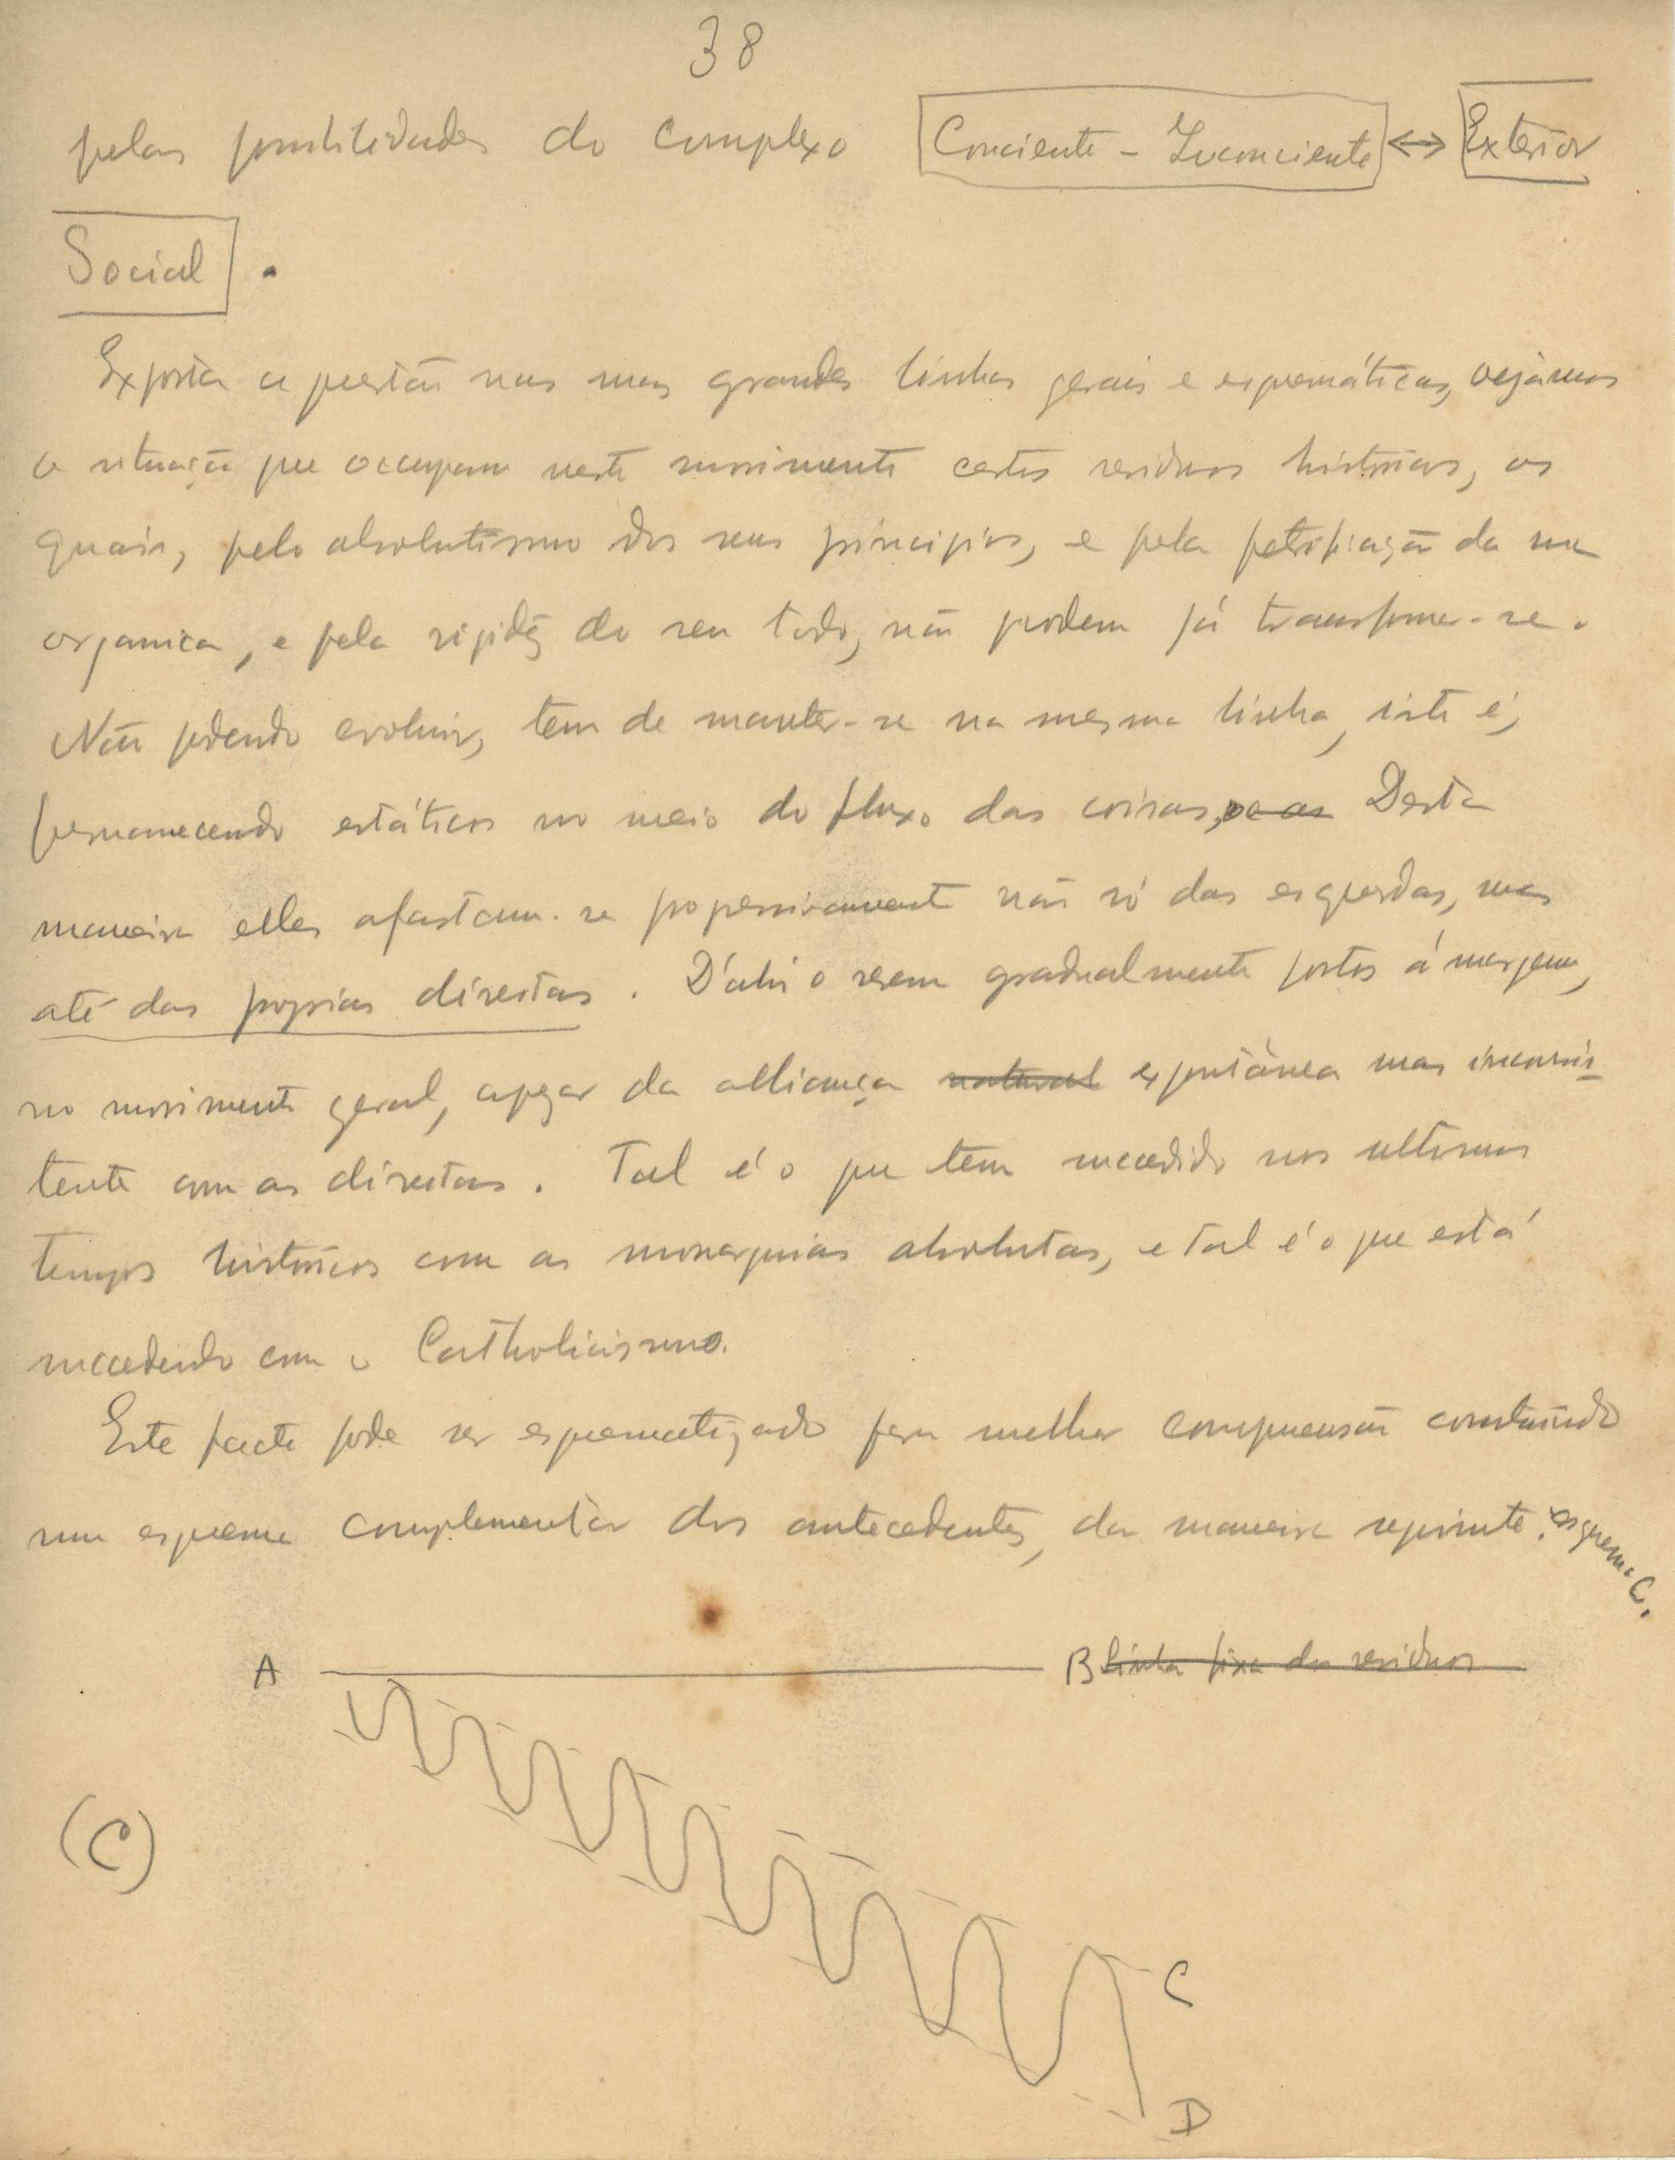 38
pelas possibilidades do complexo Conciente - Inconciente ↔ Exterior
Social.
Exposta a questão nas suas grandes linhas gerais e esquemáticas, vejâmos
a situação que occupam neste movimento certos residuos históricos, os
quais, pelo absolutismo dos seus principios, e pela petrificação da sua
organica, e pela rigidêz do seu todo, não podem já transformar-se.
Não podendo evoluir, tem de manter-se na mesma linha, isto é,
permanecendo estáticos no meio do fluxo das coisas, Desta
maneira elles afastam-se progressivamente não só das esquerdas, mas
até das proprias direitas. D'ahi o serem gradualmente postos á margem,
no movimento geral, apezar da alliança natural espontânea mas inconsis-
tente com as direitas. Tal é o que tem succedido nos ultimos
tempos históricos com as monarquias absolutas, e tal é o que está
succedendo com o Catholicismo.
Este facto pode ser esquematizado para melhor compreensão construindo
um esquema complementar dos antecedentes, da maneira seguinte: esquema C.
A B linha fixa dos residuos
(C)
C
D